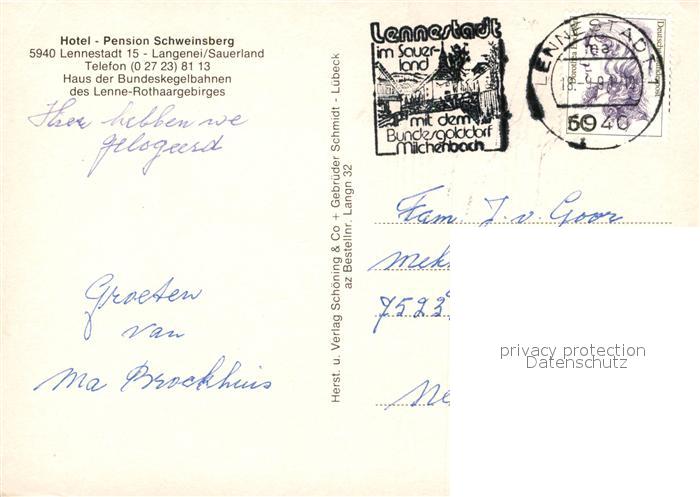 Hotel - Pension Schweinsberg
5940 Lennestadt 15 - Langenei/Sauerland
Telefon (0 27 23) 81 13
Haus der Bundeskegelbahnen
des Lenne-Rothaargebirges
Hier hebben we
gelogeerd
Groeten
van
Ma Brockhuis
Herst. u. Verlag Schöning & Co + Gebrüder Schmidt - Lübeck
az Bestellnr. Langn 32
Lennestadt
im Sauer-
land
mit dem
Bundesgolddorf
Milchenbach
LENNESTADT 1
5940
Fam. J. v. Goor
Mek
7523
Ne
privacy protection
Datenschutz